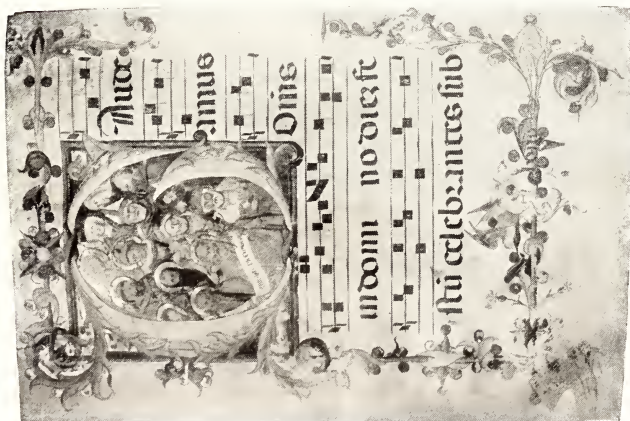 Aude
amus
Oms
in domi no diez fe
stū celebrantes sub